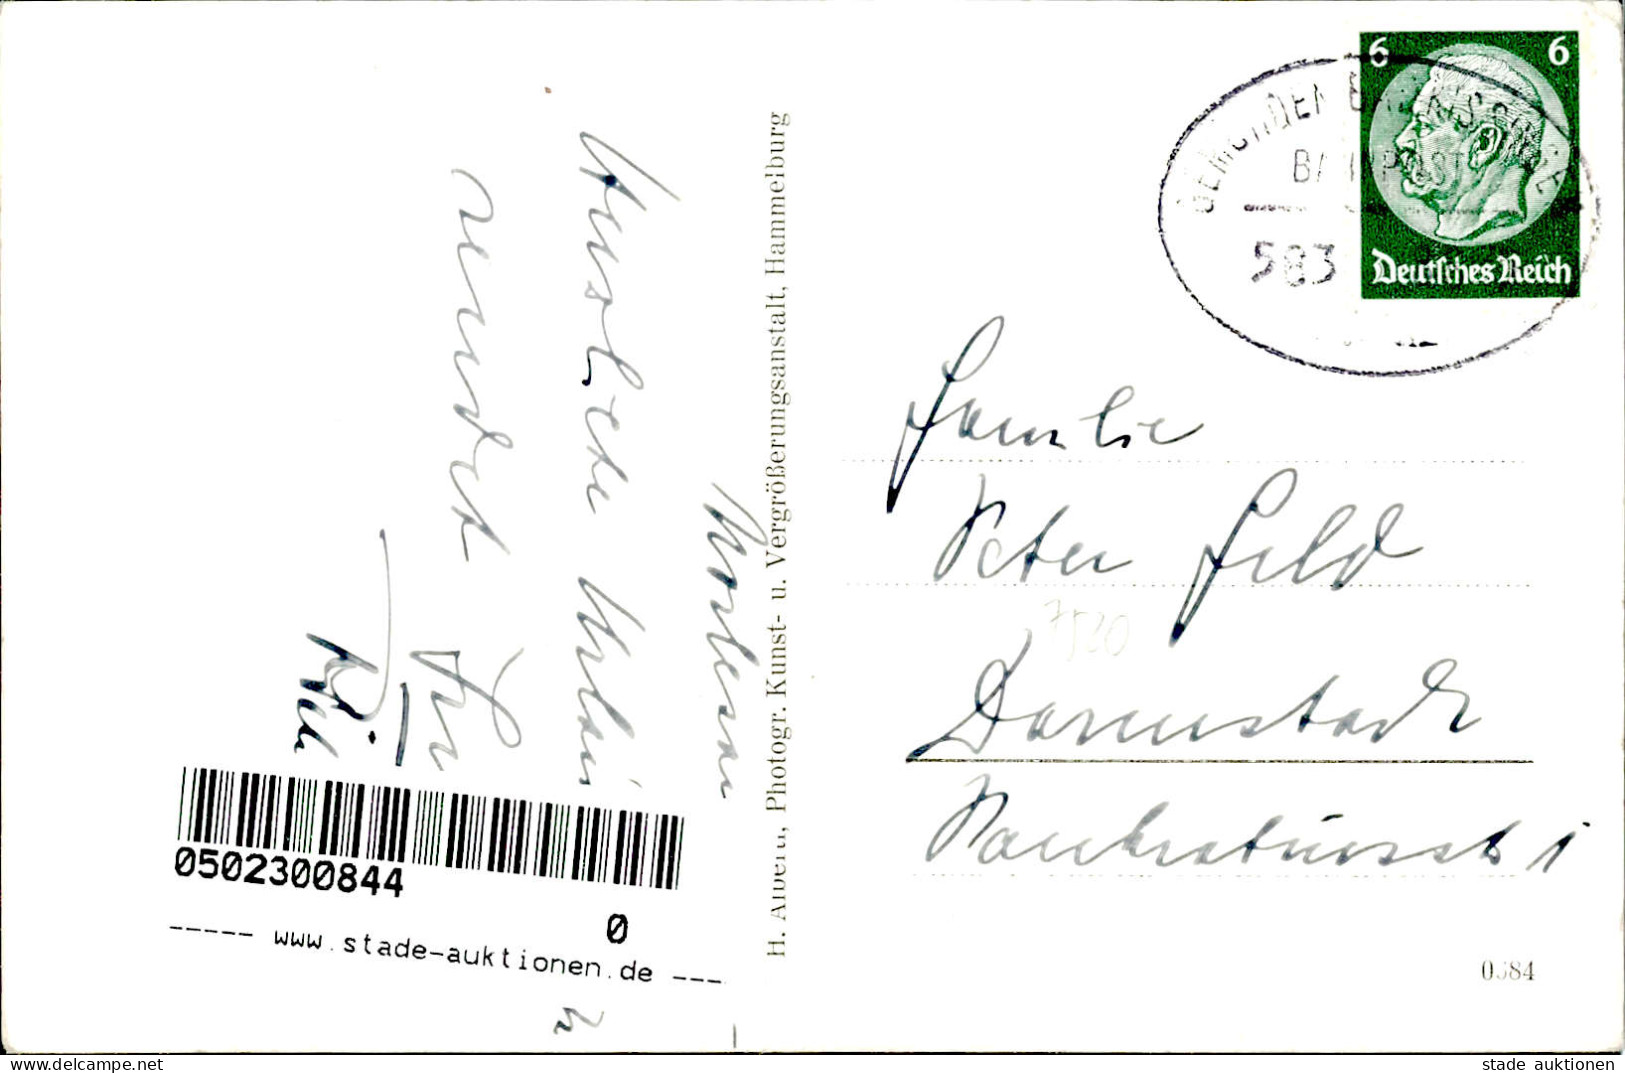 Morlesau
Herzliche Urlaub
sendet
Fr.
H. Alberti, Photogr. Kunst- u. Vergrößerungsanstalt, Hammelburg
6 6
Deutsches Reich
GEMÜNDEN
BAHNPOST
583
Familie
Peter Feld
7520
Darmstadt
1
0502300844
0
----- www.stade-auktionen.de ---
0584
stade auktionen